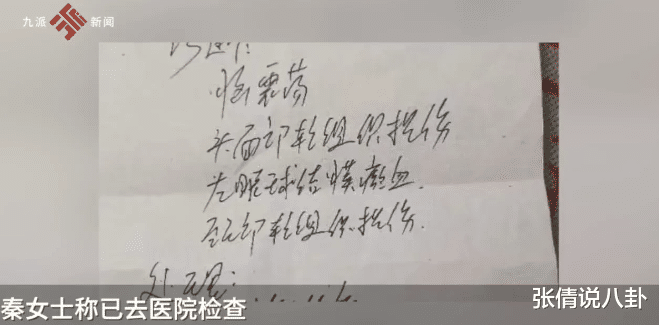 九派 新闻
诊断:
脑震荡
头面部软组织损伤
左眼球结膜瘀血.
颈部软组织损伤.
处理:
秦女士称已去医院检查
张倩说八卦